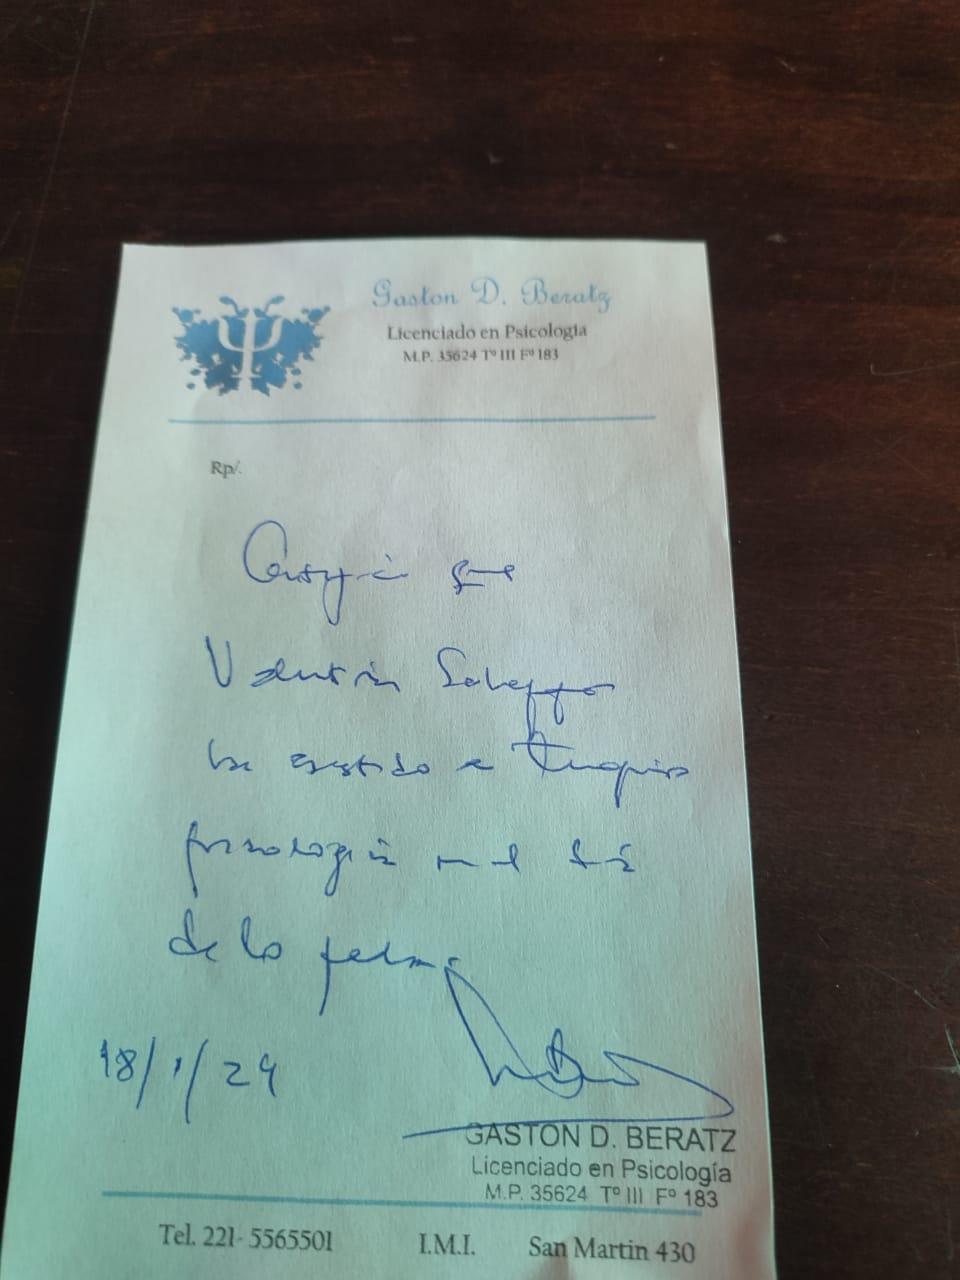 Gaston D. Beratz
Licenciado en Psicología
M.P. 35624 Tº III Fº 183
Rp/.
que
Valentin
ha asistido a terapia
psicologica en el día
de la fecha.
18/1/24
GASTON D. BERATZ
Licenciado en Psicología
M.P. 35624 Tº III Fº 183
Tel. 221- 5565501 I.M.I. San Martin 430